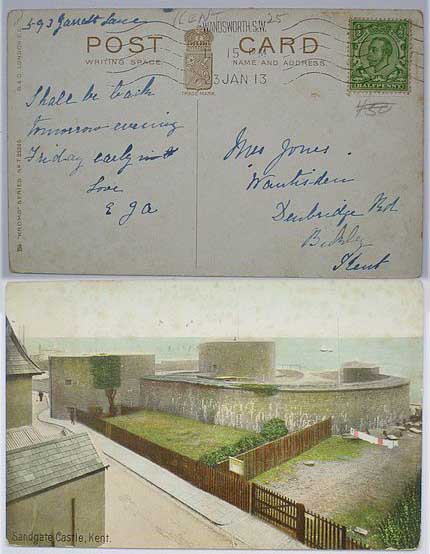 593 Jarrett Lane
(KENT 25
WANDSWORTH. S.W.
15
3 JAN 13
POST CARD
WRITING SPACE
NAME AND ADDRESS
TRADE MARK.
HALFPENNY
450
Shall be back
tomorrow evening
Friday early
Love
E J A
Mrs Jones.
Wantisden
Denbridge Rd
Bickley
Kent
"KROMO" SERIES
B. & D. LONDON E.C.
Sandgate Castle, Kent.